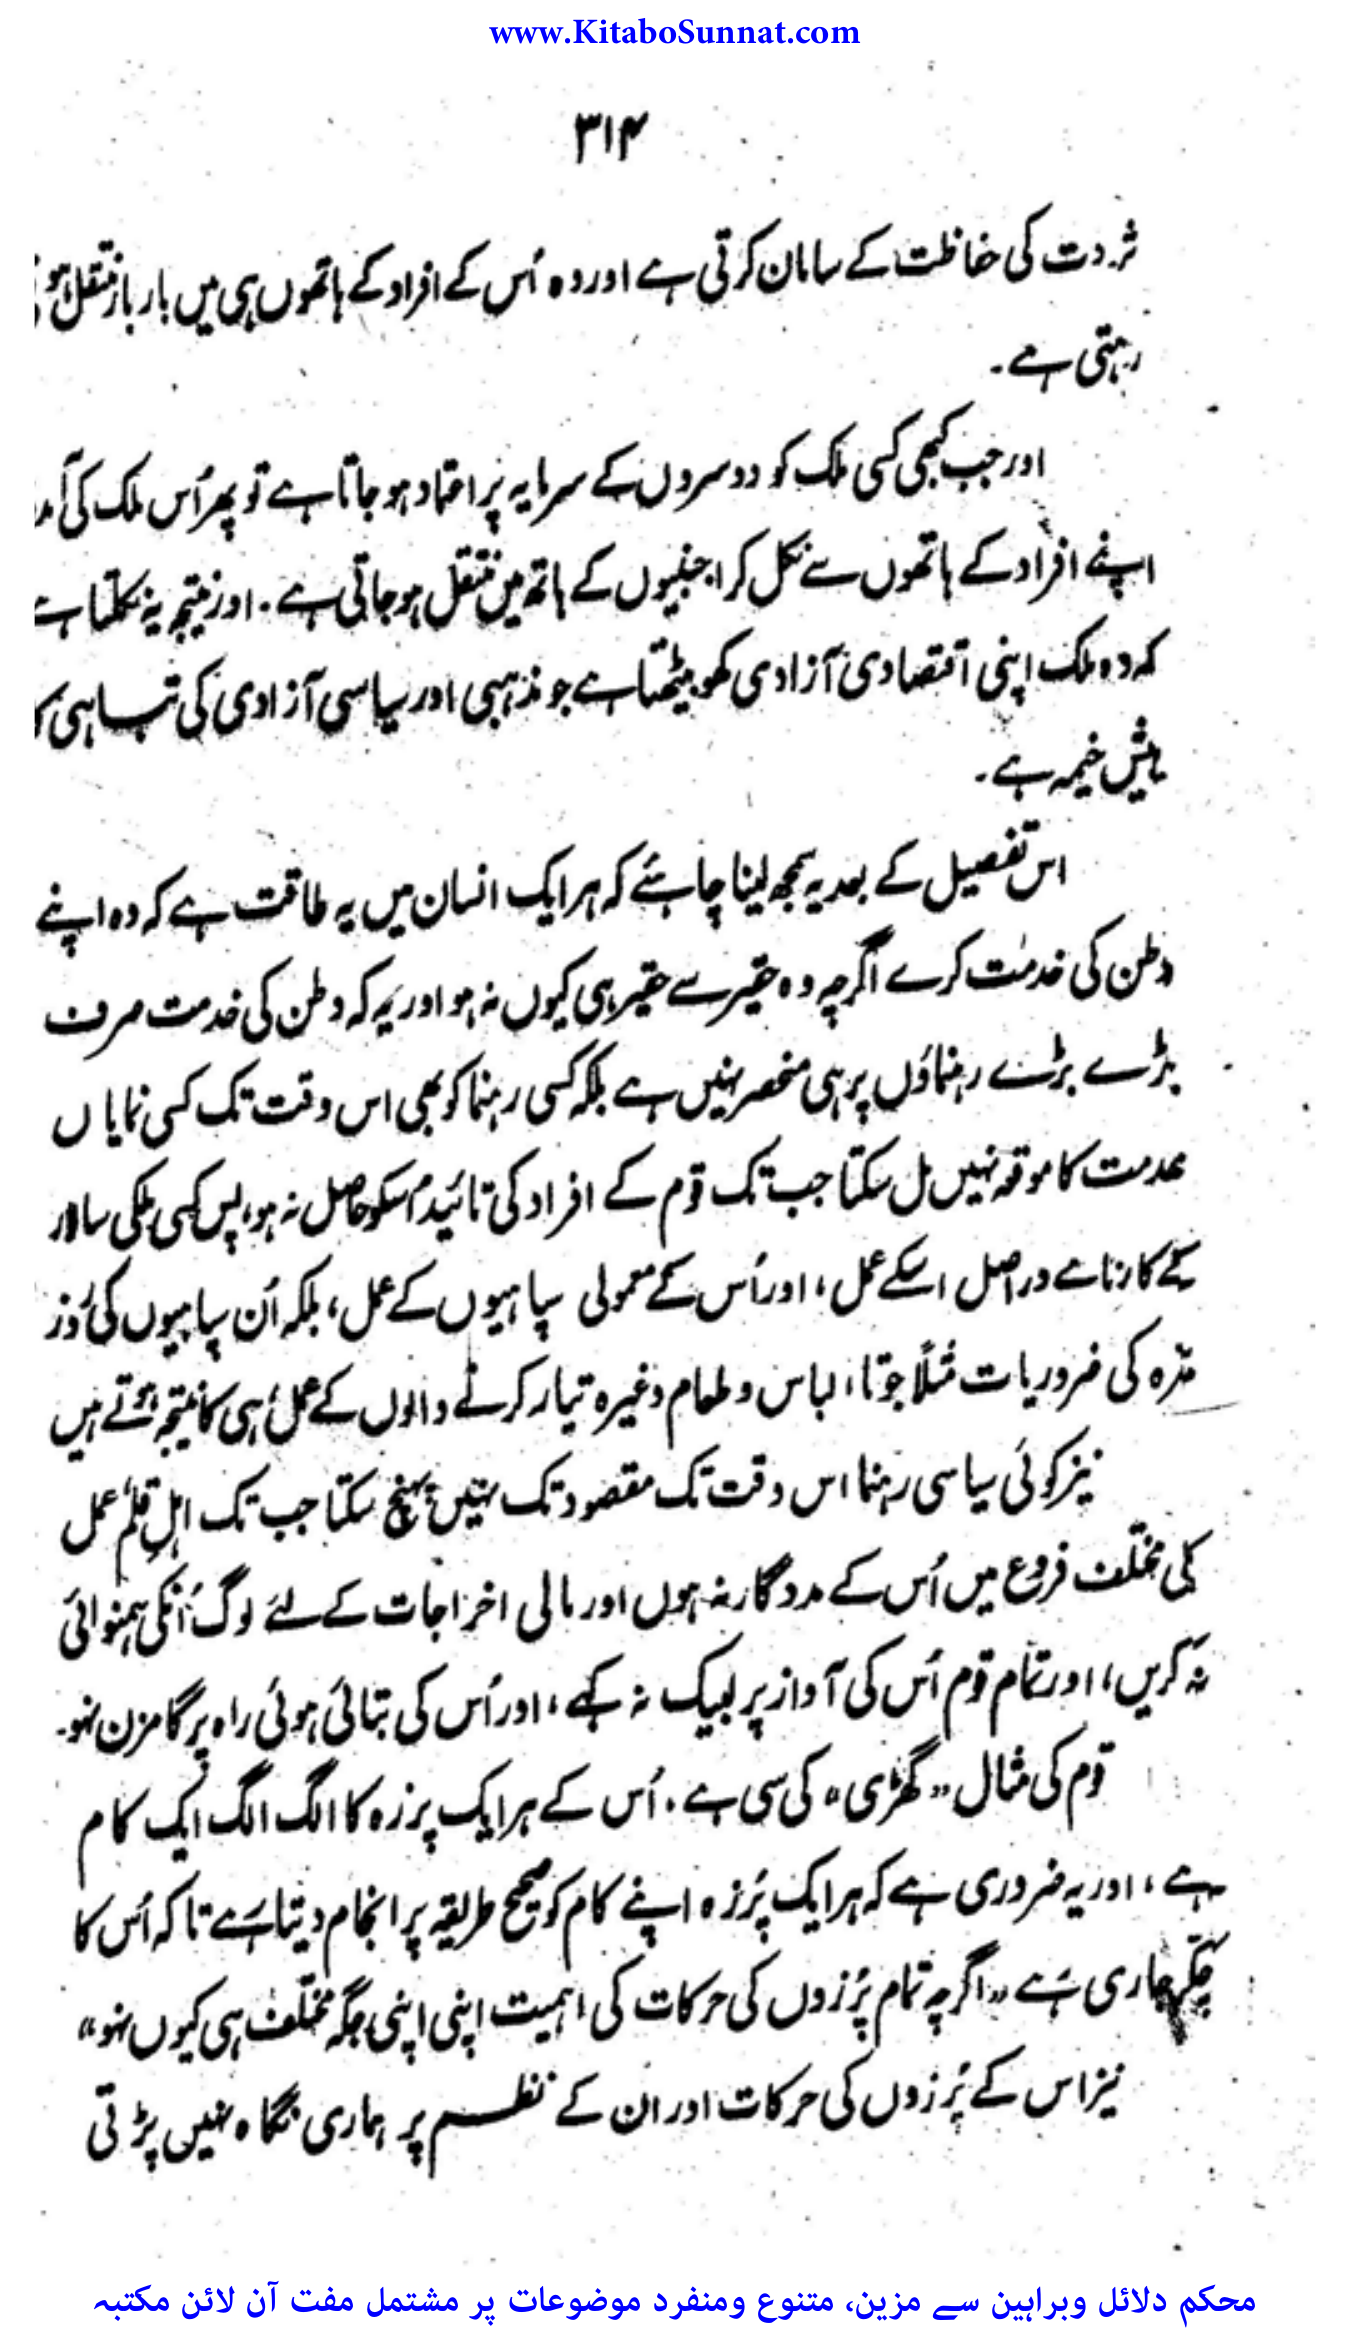 www.KitaboSunnat.com
۳۱۴
ثروت کی حفاظت کے سامان کرتی ہے اور وہ اُس کے افراد کے ہاتھوں ہی میں بار بار منتقل ہو
رہتی ہے۔
اور جب کبھی کسی ملک کو دوسروں کے سرمایہ پر اعتماد ہو جاتا ہے تو پھر اُس ملک کی
اپنے افراد کے ہاتھوں سے نکل کر اجنبیوں کے ہاتھ میں منتقل ہو جاتی ہے۔ اور نتیجہ یہ نکلتا ہے
کہ وہ ملک اپنی اقتصادی آزادی کھو بیٹھتا ہے جو مذہبی اور سیاسی آزادی کی تباہی
پیش خیمہ ہے۔
اس تفصیل کے بعد یہ سمجھ لینا چاہئے کہ ہر ایک انسان میں یہ طاقت ہے کہ وہ اپنے
وطن کی خدمت کرے اگرچہ وہ حقیر سے حقیر ہی کیوں نہ ہو اور یہ کہ وطن کی خدمت صرف
بڑے بڑے رہنماؤں پر ہی منحصر نہیں ہے بلکہ کسی رہنما کو بھی اس وقت تک کسی نمایاں
خدمت کا موقعہ نہیں مل سکتا جب تک قوم کے افراد کی تائید اسکو حاصل نہ ہو، پس کسی ملکی
کے کارنامے دراصل اسکے عمل، اور اُس کے معمولی سپاہیوں کے عمل، بلکہ اُن سپاہیوں کی روز
مرّہ کی ضروریات مثلاً جوتا، لباس و طعام وغیرہ تیار کرنے والوں کے عمل ہی کا نتیجہ ہوتے ہیں
نیز کوئی سیاسی رہنما اس وقت تک مقصود تک نہیں پہنچ سکتا جب تک اہلِ قلم عمل
کی مختلف فروع میں اُس کے مددگار نہ ہوں اور مالی اخراجات کے لئے لوگ اُنکی ہمنوائی
نہ کریں، اور تمام قوم اُس کی آواز پر لبیک نہ کہے، اور اُس کی بتائی ہوئی راہ پر گامزن نہو۔
قوم کی مثال ”گھڑی“ کی سی ہے۔ اُس کے ہر ایک پرزہ کا الگ الگ ایک کام
ہے، اور یہ ضروری ہے کہ ہر ایک پُرزہ اپنے کام کو صحیح طریقہ پر انجام دیتا رہے تاکہ اُس کا
چکّر جاری رہے ”اگرچہ تمام پُرزوں کی حرکات کی اہمیت اپنی اپنی جگہ مختلف ہی کیوں نہو“
نیز اس کے پُرزوں کی حرکات اور ان کے نظم پر ہماری نگاہ نہیں پڑتی
محکم دلائل وبراہین سے مزین، متنوع ومنفرد موضوعات پر مشتمل مفت آن لائن مکتبہ